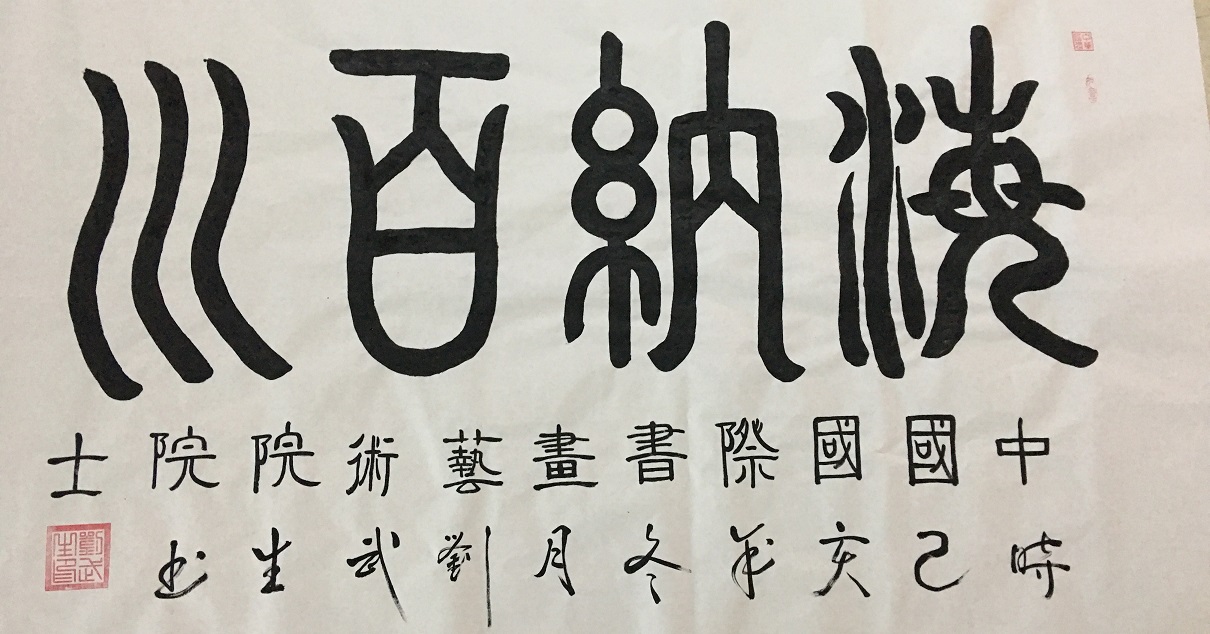 海納百川
中國國際書畫藝術院院士
時己亥年冬月劉武生书
劉武生印